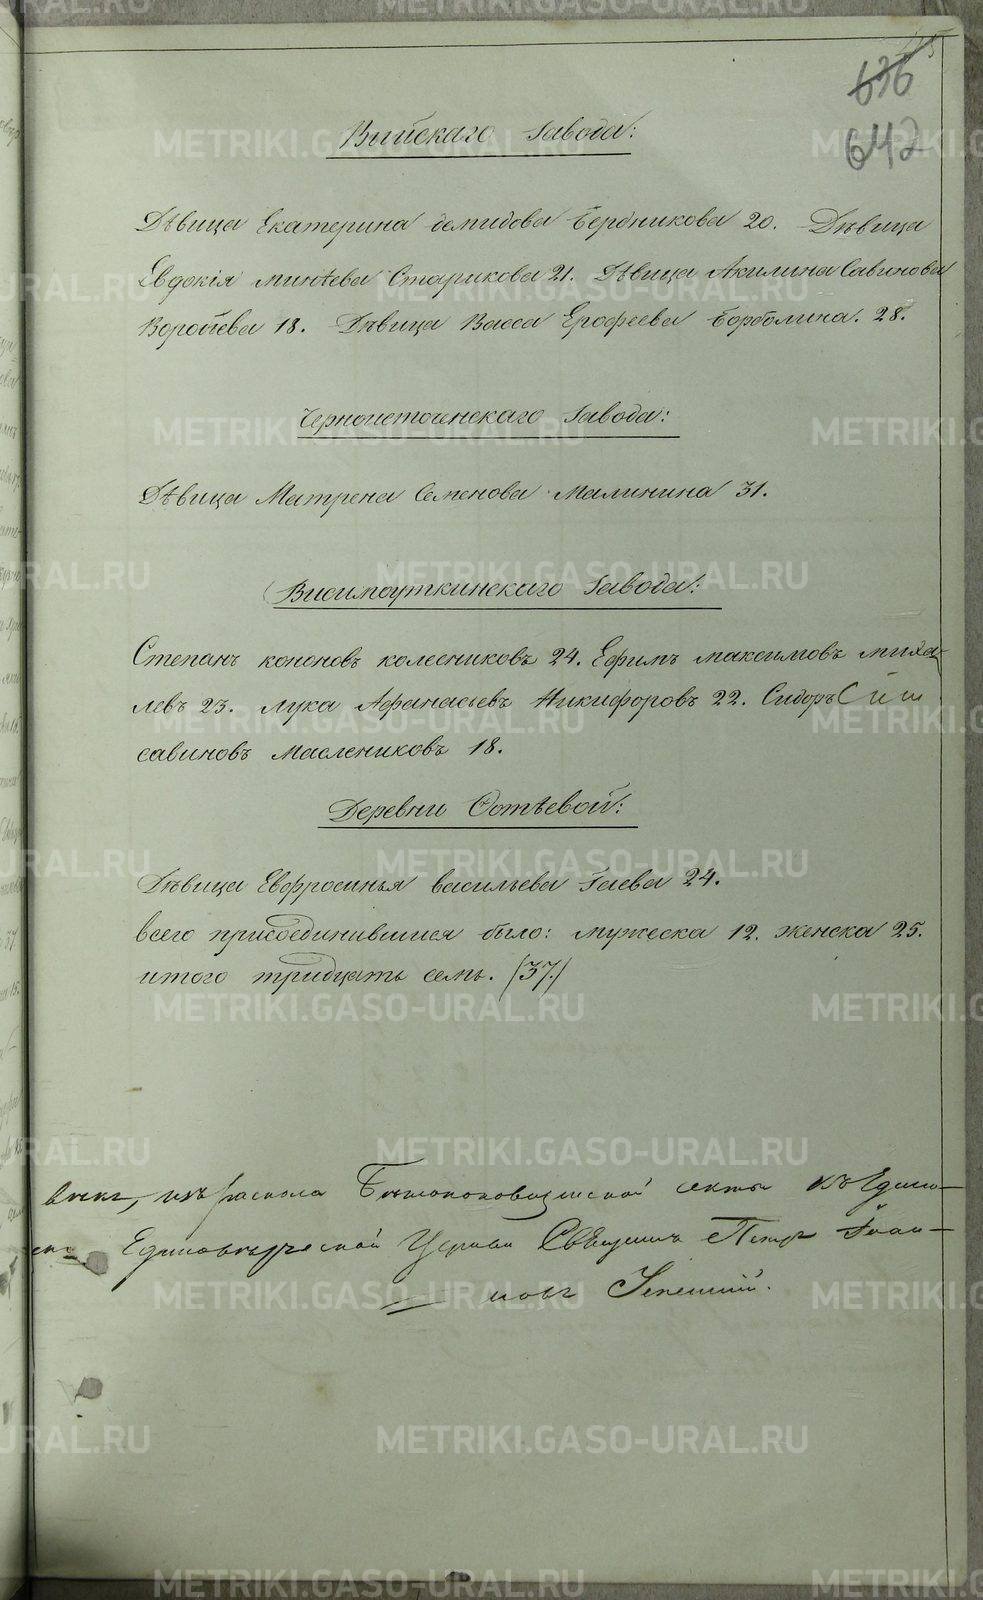 636
642
Выйскаго Завода:
Дѣвица Екатерина Демидова Бердникова 20. Дѣвица
Евдокія Минѣева Старикова 21. Дѣвица Акилина Савинова
Воробіева 18. Дѣвица Васса Ерофеева Борболина. 28.
Черноисточенскаго Завода:
Дѣвица Матрена Семенова Малинина 31.
Висимоуткинскаго Завода:
Степанъ Кононовъ Колесниковъ 24. Ефимъ Максимовъ Миха-
левъ 23. Лука Афанасьевъ Никифоровъ 22. Сидоръ
Савиновъ Маслениковъ 18.
Деревни Фотѣевой:
Дѣвица Евфросинья Васильева Гаева 24.
Всего присоединившихся было: мужеска 12. женска 25.
итого тридцать семь. (37.)
изъ раскола Бѣглопоповщинской секты къ Едино-
Единовѣрческой Церкви Священникъ Петръ Іоан-
новъ
METRIKI.GASO-URAL.RU